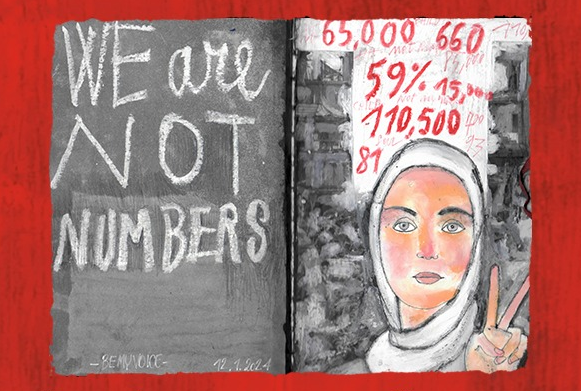 WE are
NOT
NUMBERS
-BEMYVOICE-
12.1.2024
65,000 660
59% 15,000
110,500
81